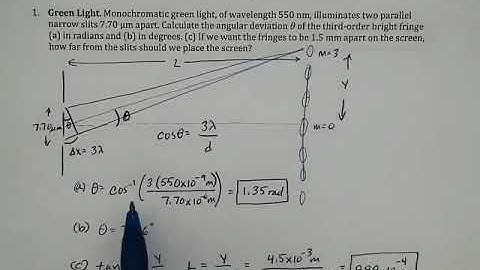 1. Green Light. Monochromatic green light, of wavelength 550 nm, illuminates two parallel
narrow slits 7.70 μm apart. Calculate the angular deviation θ of the third-order bright fringe
(a) in radians and (b) in degrees. (c) If we want the fringes to be 1.5 mm apart on the screen,
how far from the slits should we place the screen?
L
m=3
Y
7.70μm
θ
θ
m=0
Δx = 3λ
cosθ = 3λ/d
(a) θ = cos⁻¹ (3(550×10⁻⁹m)/7.70×10⁻⁶m) = 1.35 rad
(b) θ =
(c) tan Y L = Y = 4.5×10⁻³m =